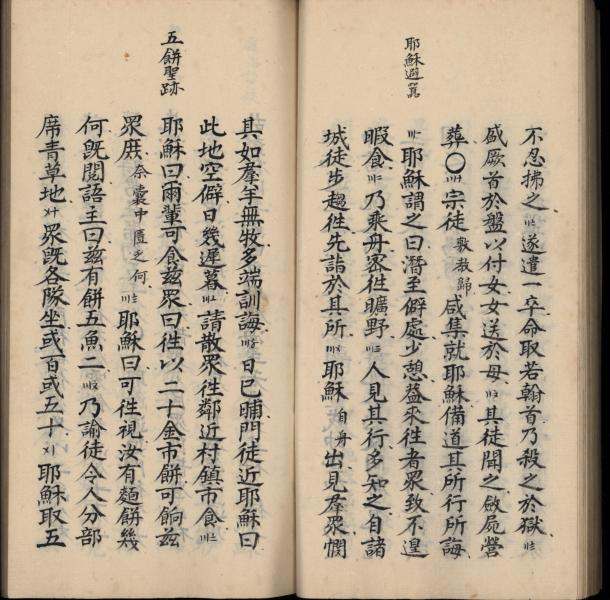 耶穌避嚚
不忍拂之遂遣一卒命取若翰首乃殺之於獄
盛厥首於盤以付女女送於母其徒聞之斂屍營
葬〇宗徒敷教歸咸集就耶穌備道其所行所誨
耶穌謂之曰潛至僻處少憩葢來徃者眾致不遑
暇食乃乘舟密徃曠野人見其行多知之自諸
城徒步趨徃先詣於其所耶穌自舟出見羣眾憫
五餅聖跡
其如羣羊無牧多端訓誨日已晡門徒近耶穌曰
此地空僻日幾遲暮請散眾徃鄰近村鎮市食
耶穌曰爾輩可食茲眾曰徃以二十金市餅可餉茲
眾庶奈囊中匱乏何耶穌曰可徃視汝有麵餅幾
何既閱語主曰茲有餅五魚二乃諭徒令人分部
席青草地眾既各隊坐或百或五十耶穌取五